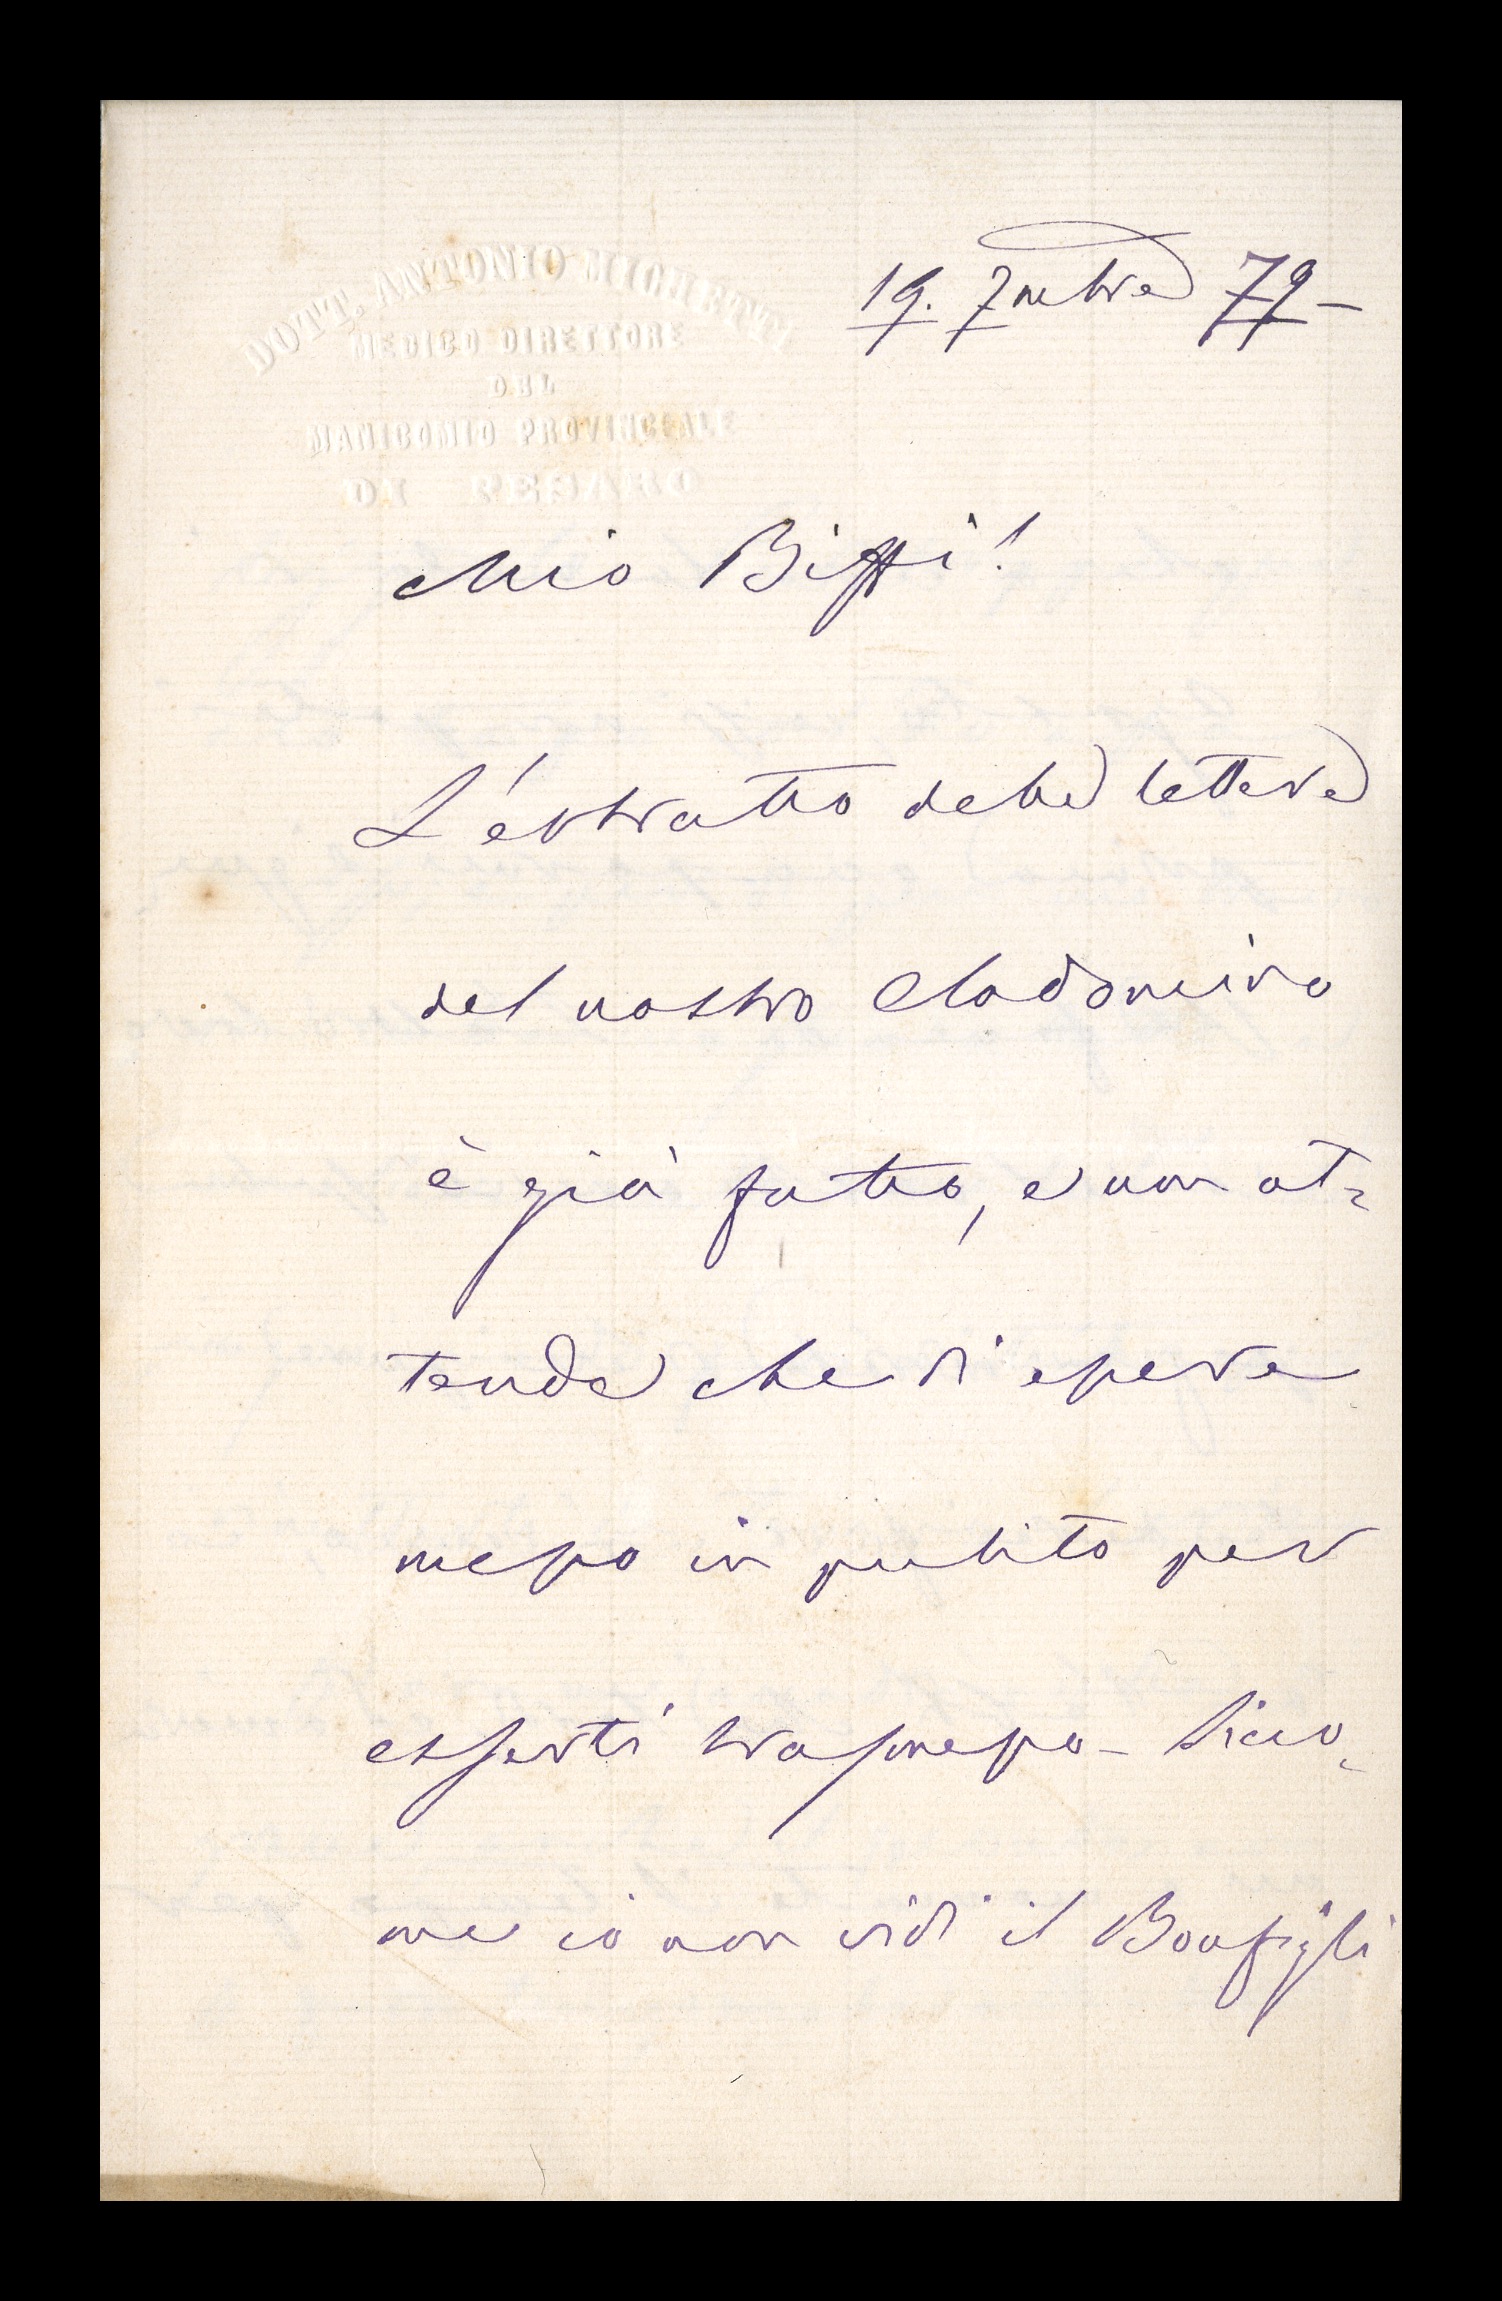 DOTT. ANTONIO MICHETTI
MEDICO DIRETTORE
DEL
MANICOMIO PROVINCIALE
DI PESARO
19. 7mbre 79 -
Mio Biffi!
L'éstratto delle lettere
del nostro Clodomiro
è già fatto, e non at=
tende che di essere
messo in pulito per
esserti trasmesso - Sicco=
me io non vidi il Bonfigli